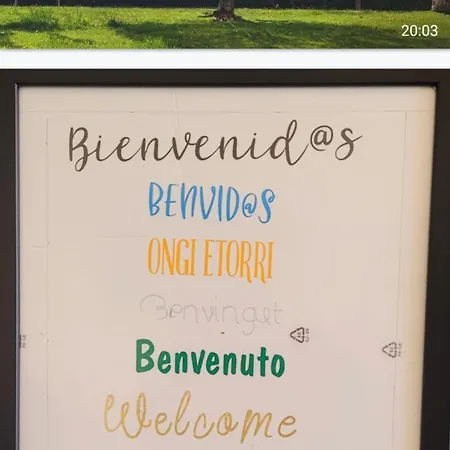 20:03
Bienvenid@s
BENVID@S
ONGI ETORRI
Benvinget
Benvenuto
Welcome